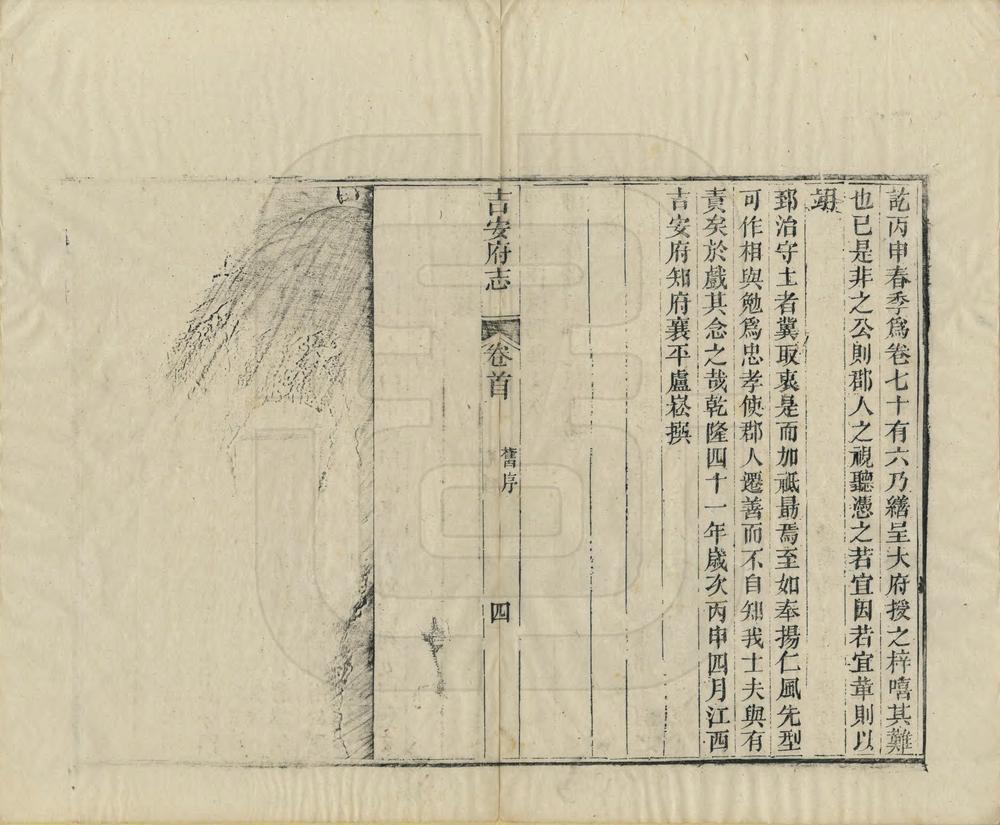 訖丙申春季爲卷七十有六乃繕呈大府授之梓嘻其難
也已是非之公則郡人之視聽憑之若宜因若宜革則以
竢
郅治守土者冀取衷是而加祗勗焉至如奉揚仁風先型
可作相與勉爲忠孝使郡人遷善而不自知我士夫與有
責矣於戲其念之哉乾隆四十一年歲次丙申四月江西
吉安府知府襄平盧崧撰
吉安府志
卷首
舊序
四